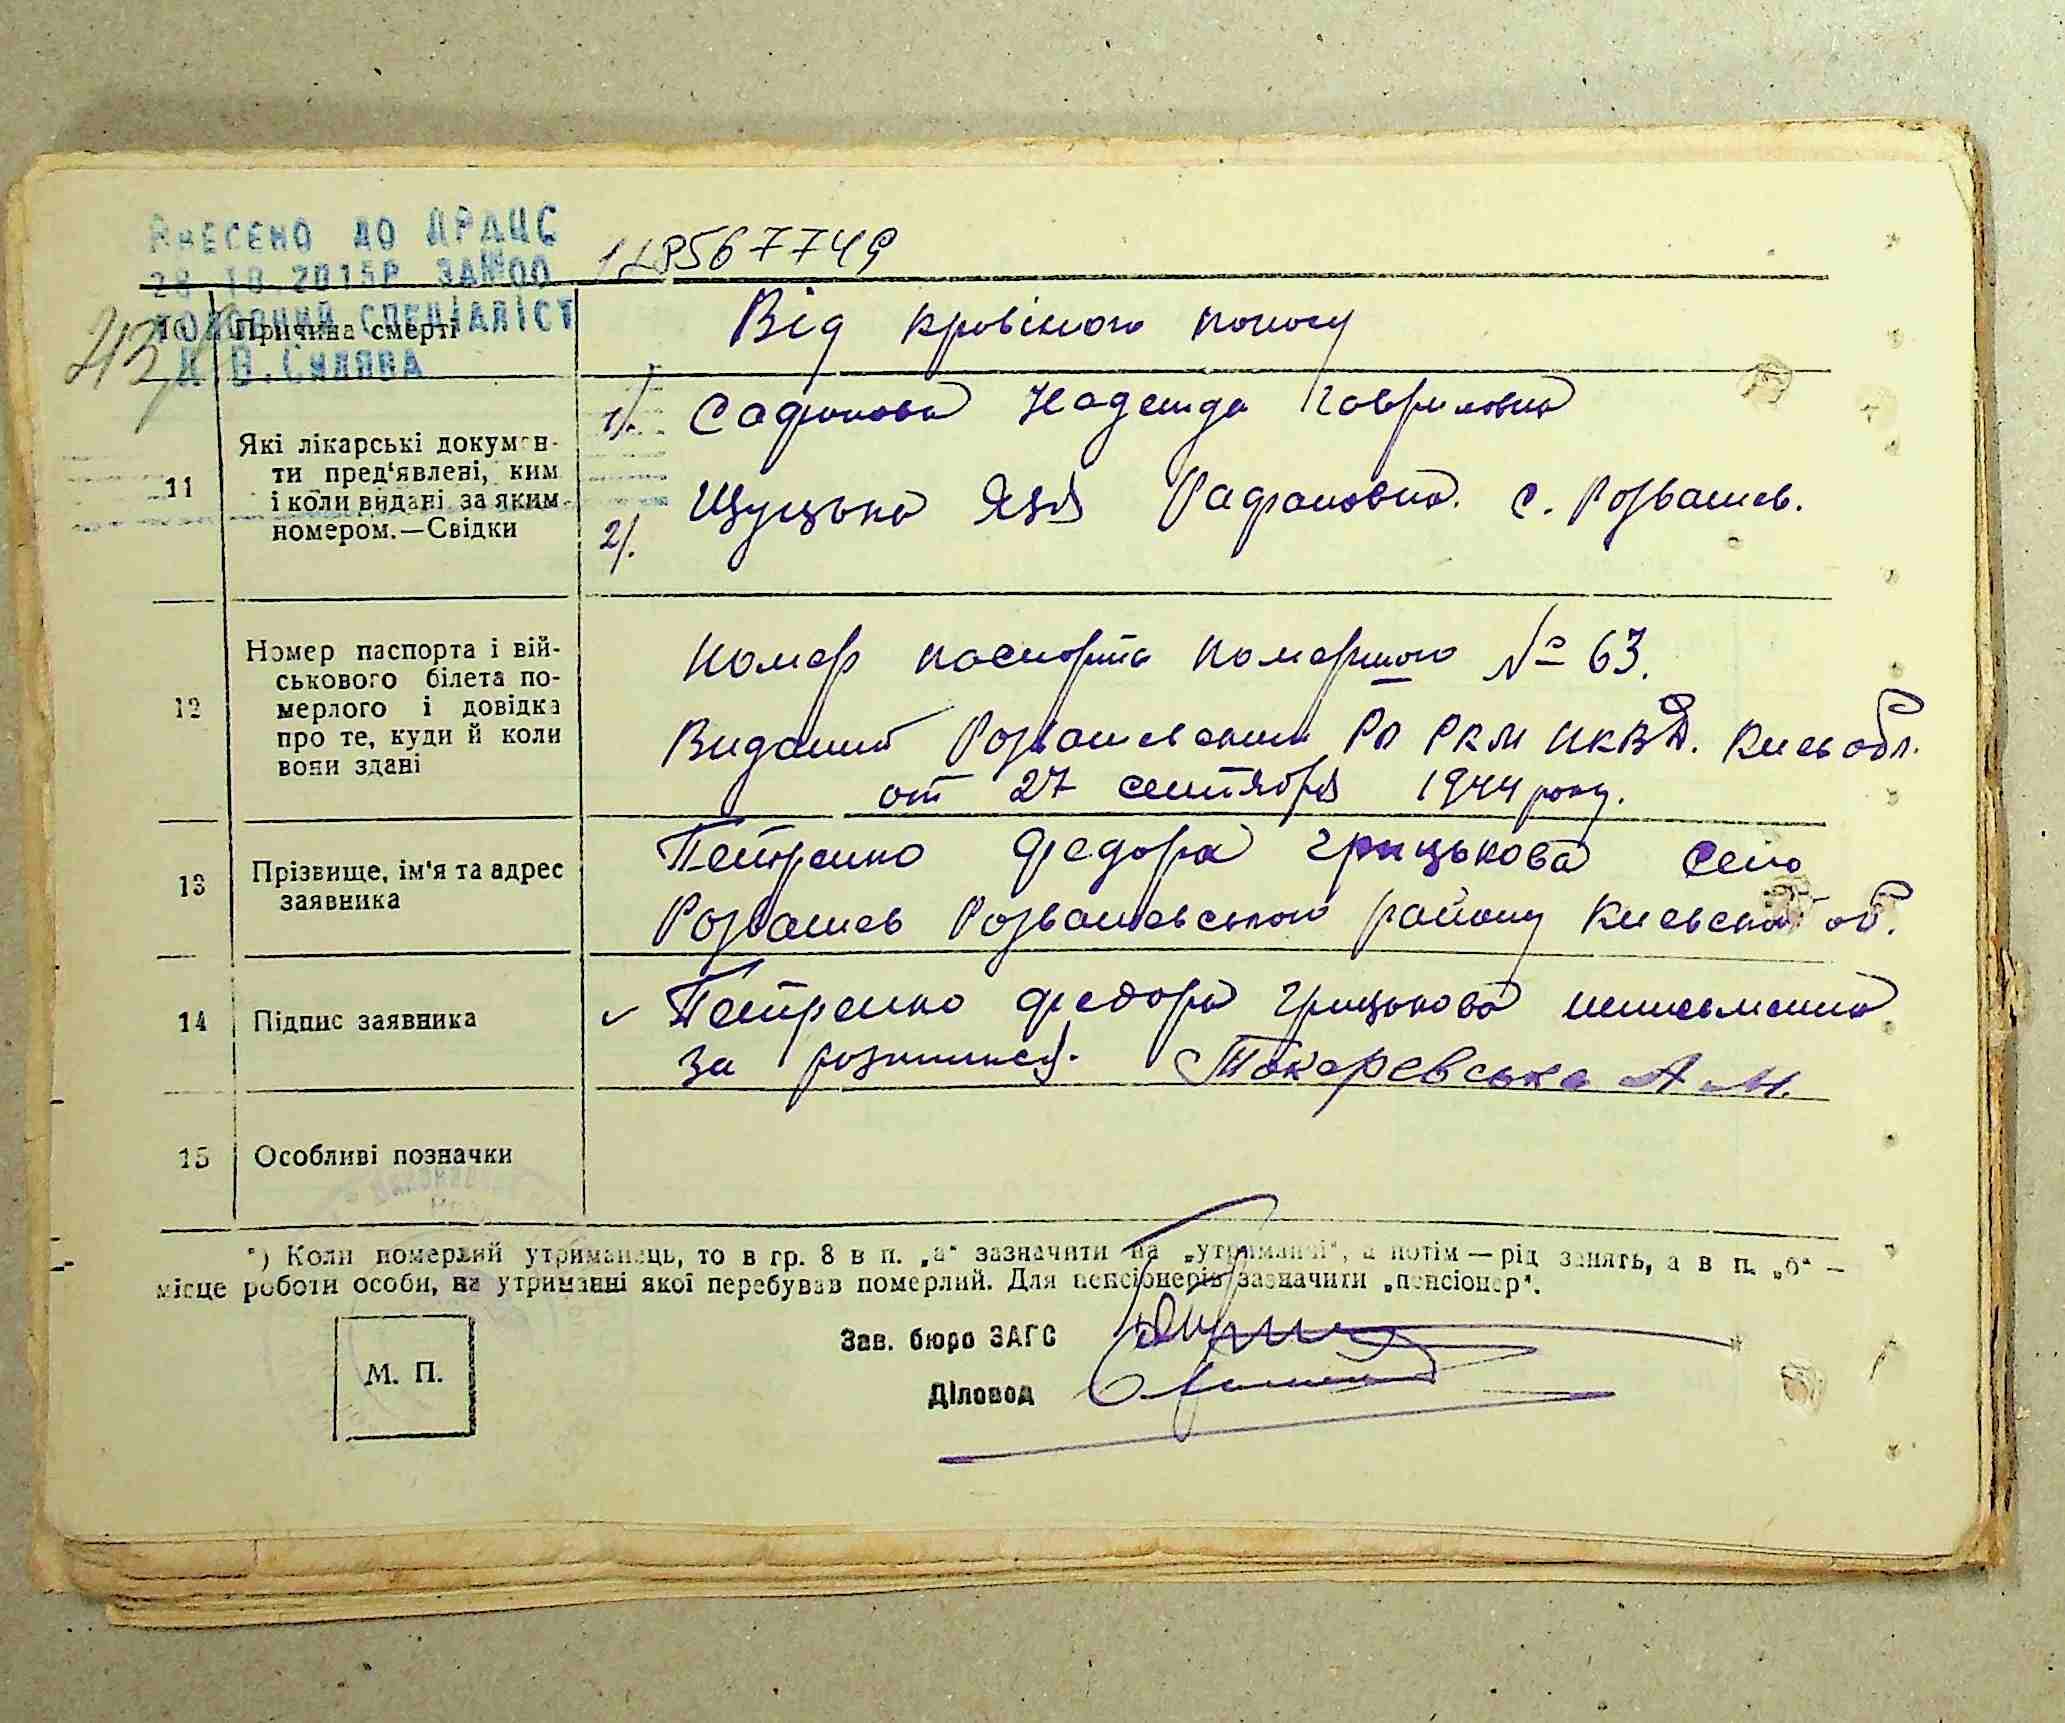 ВНЕСЕНО ДО ДРАЦС
28.10.2015Р ЗА№00
ГОЛОВНИЙ СПЕЦІАЛІСТ
В. СИЛЯВА
10 Причина смерті
Від кровіного поносу
11 Які лікарські докумен-
ти пред'явлені, ким
і коли видані за яким
номером.—Свідки
1/. Сафонова Надежда Гавриловна
2/. Щуцька Яця Рафаловна. с. Розважев.
12 Номер паспорта і вій-
ськового білета по-
мерлого і довідка
про те, куди й коли
вони здані
Номер паспорта помершого № 63.
Виданий Розважевским РО РКМ НКВД. Киев обл.
от 27 сентября 1944 року.
13 Прізвище, ім'я та адрес
заявника
Петренко Федора Грицькова село
Розважев Розважевського району Киевской об.
14 Підпис заявника
Петренко Федора Грицькова неписьменна
за розписався. Токаревська А М.
15 Особливі позначки
*) Коли померлий утриманець, то в гр. 8 в п. „а" зазначити на „утриманні", а потім — рід занять, а в п. „б" —
місце роботи особи, на утриманні якої перебував померлий. Для пенсіонерів зазначити „пенсіонер".
Зав. бюро ЗАГС
Діловод
М. П.